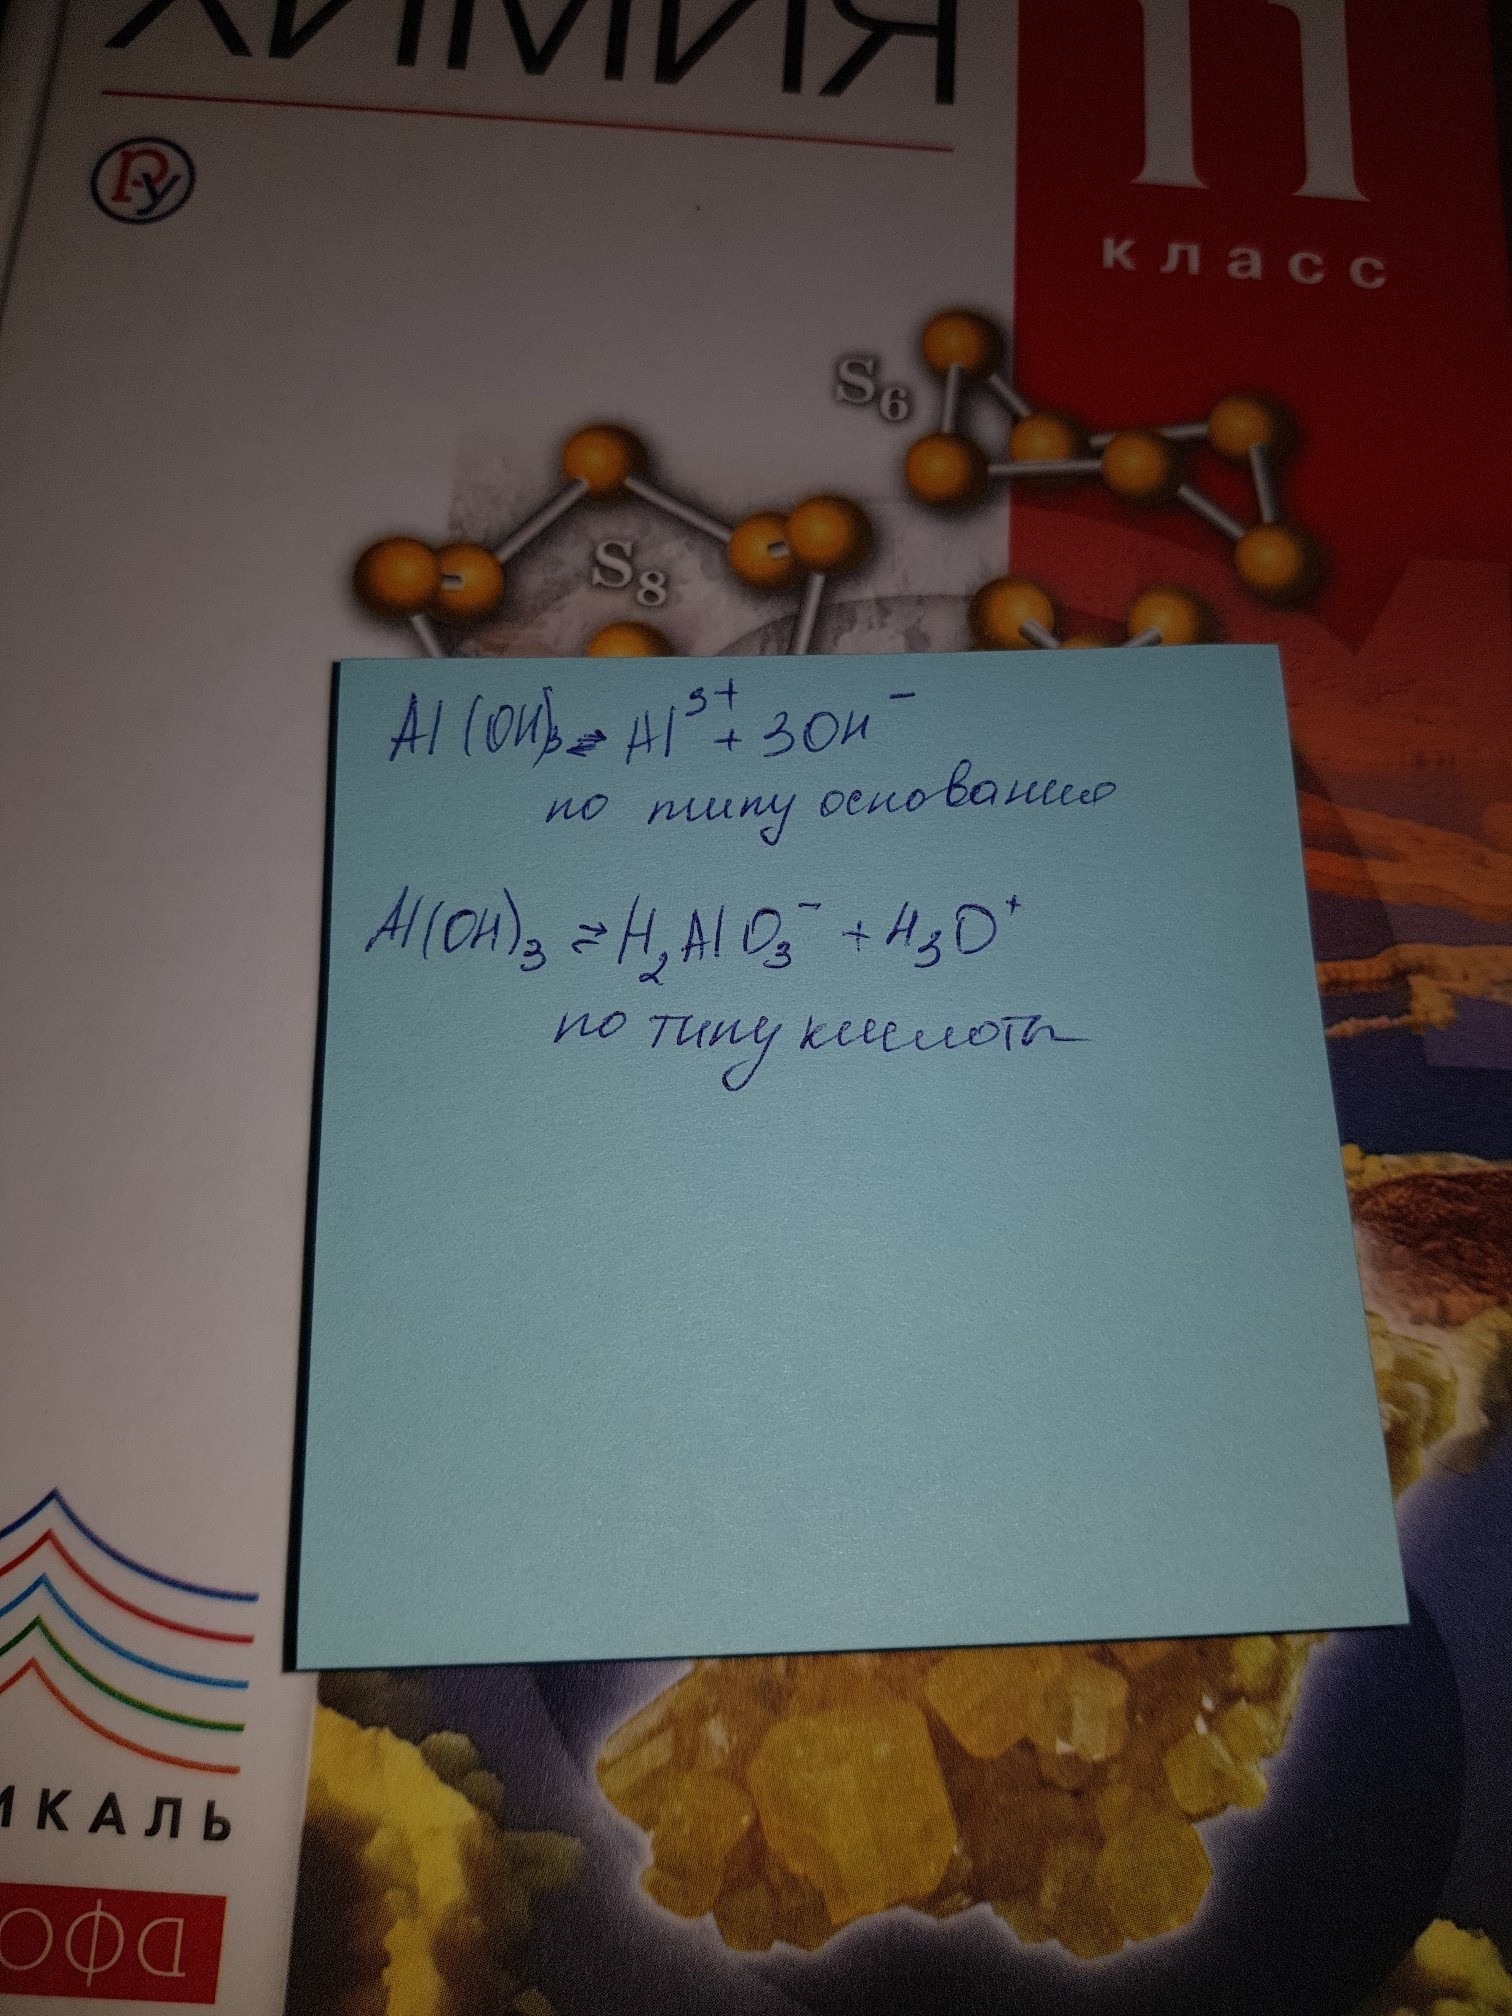 ХИМИЯ
11
класс
РУ
S6
S8
Al(OH)3 ⇌ Al³⁺ + 3OH⁻
по типу основания
Al(OH)₃ ⇌ H₂AlO₃⁻ + H₃O⁺
по типу кислоты
ИКАЛЬ
ОФА